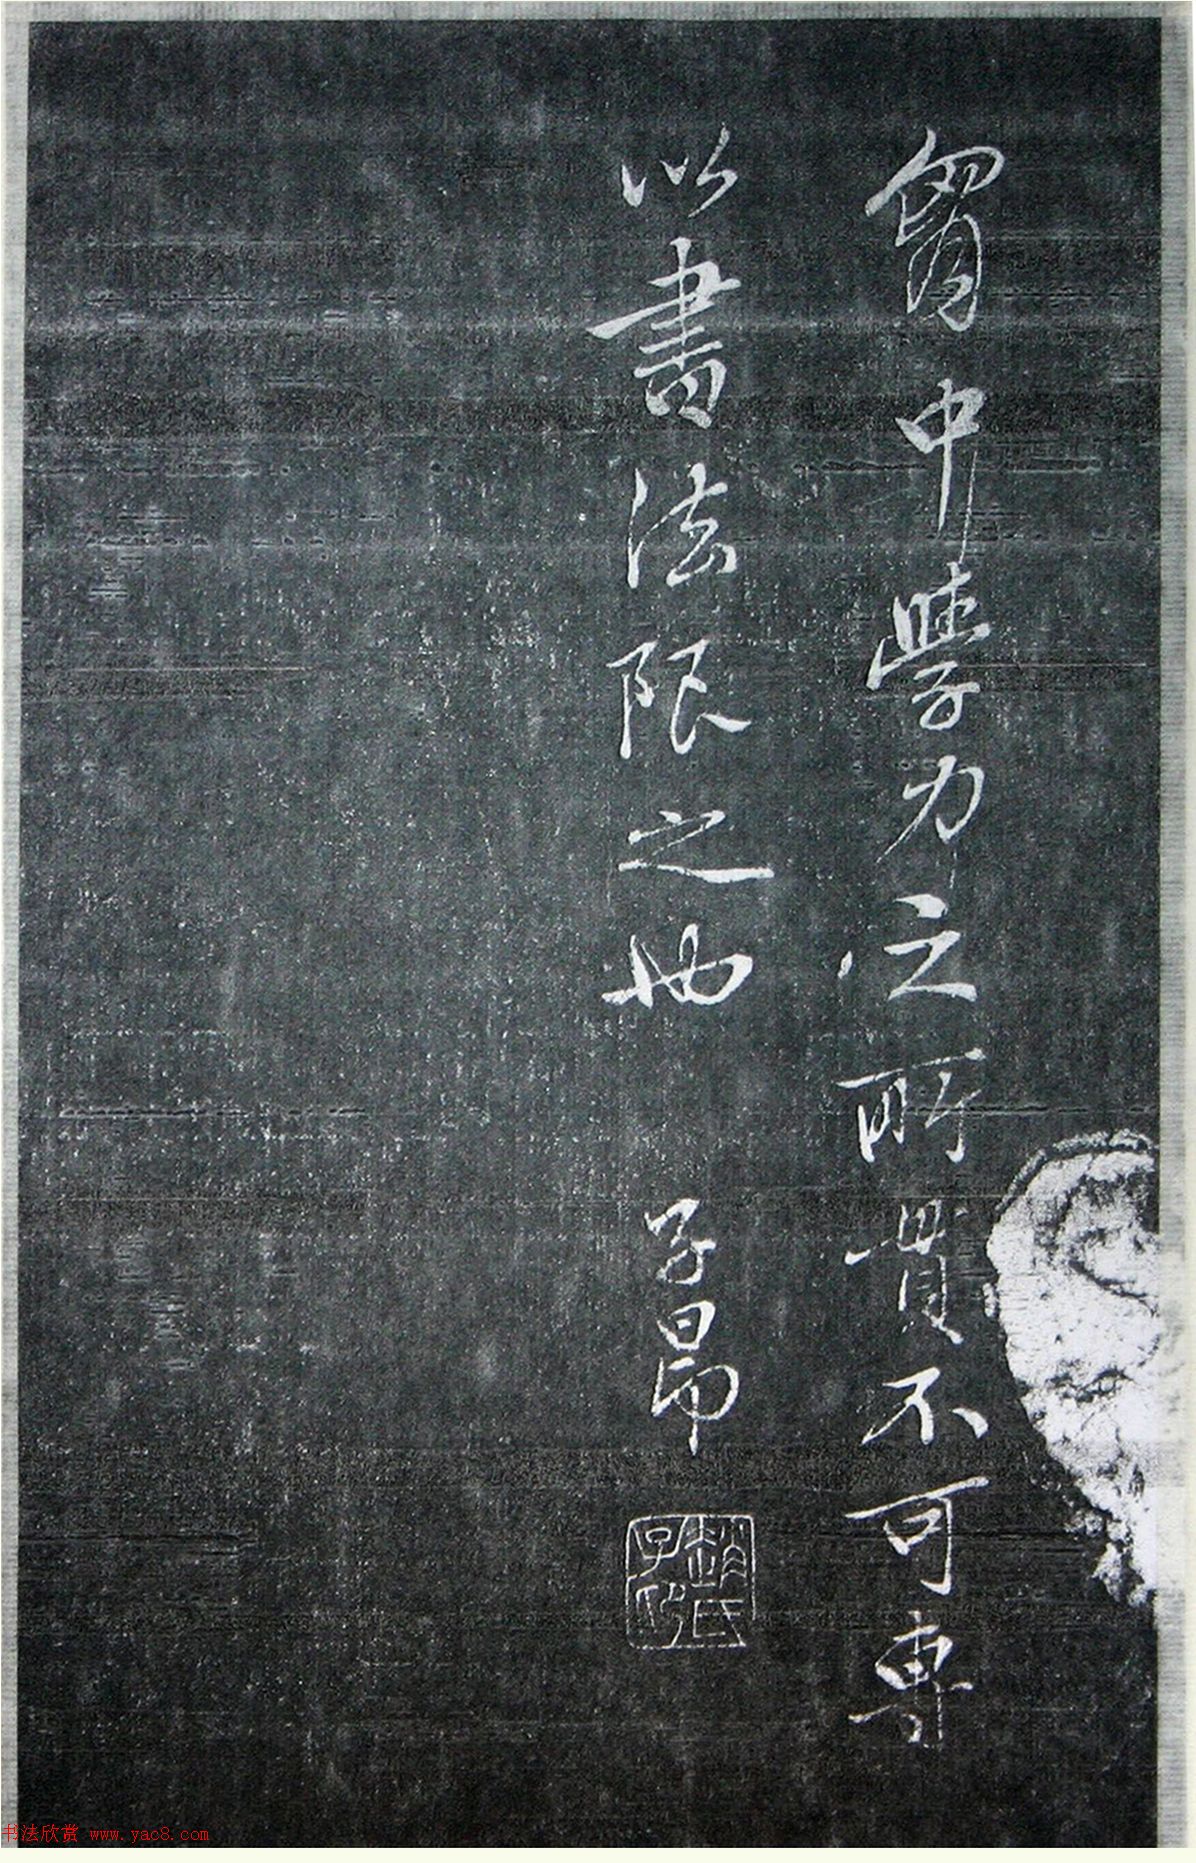 胷中學力之所貫不可專
以書法限之也 子昂
趙氏子昂
书法欣赏 www.yac8.com